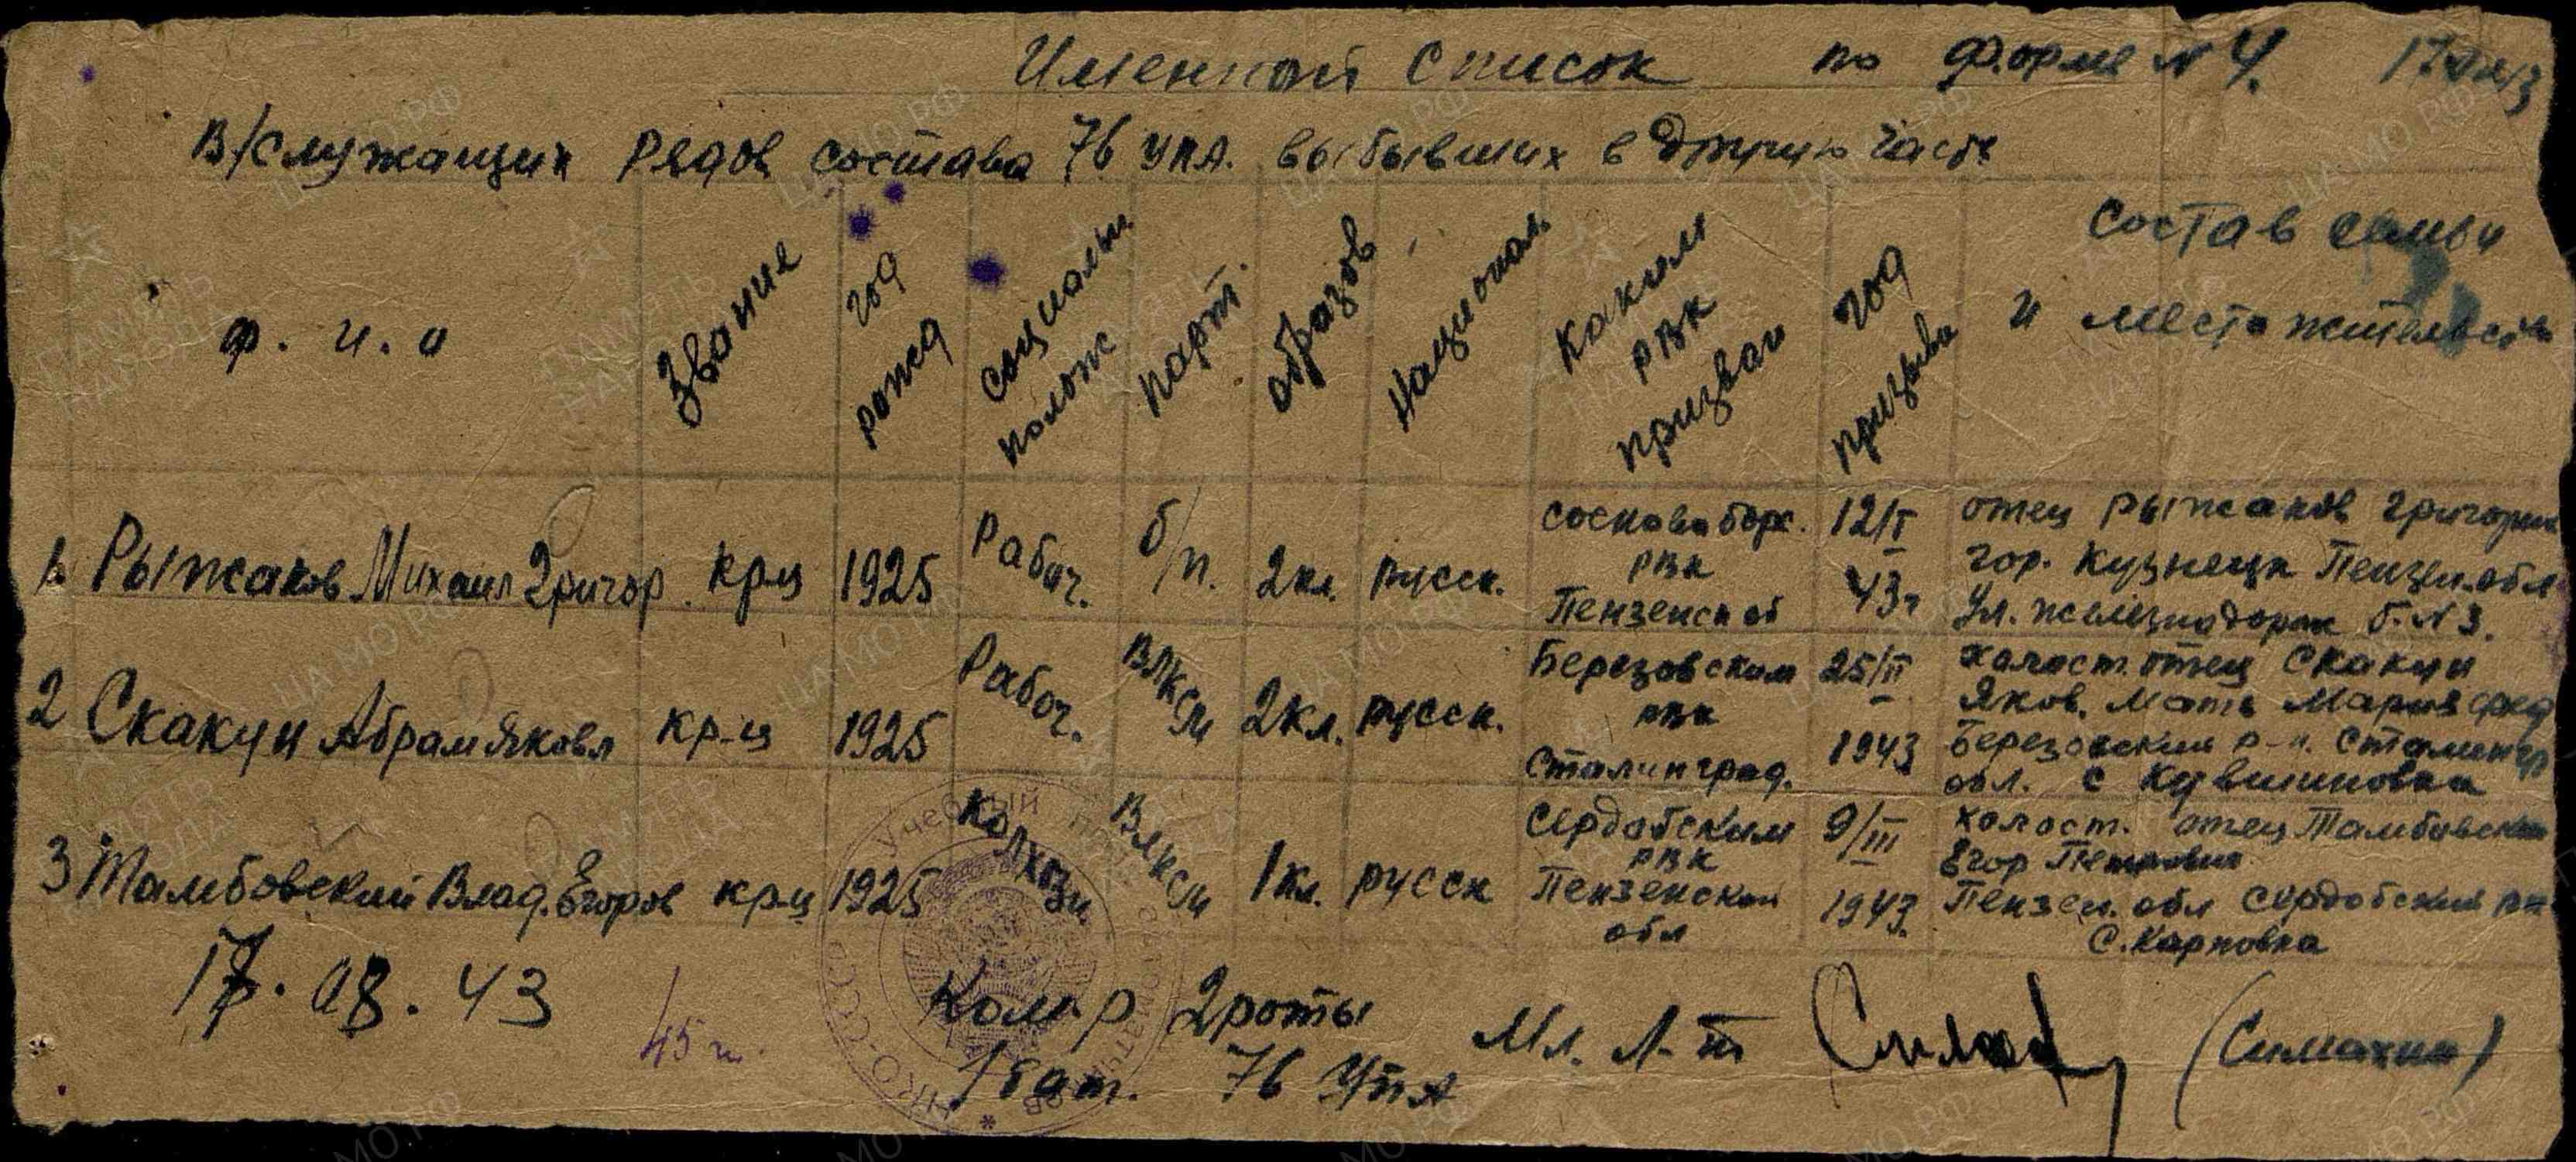 Именной список по форме N 4.
В/служащих рядов состава 76 упА. выбывших в другую часть
ф. и. о
Звание
год рожд
социальн полож
парт.
образов
национал
каким РВК призван
год призыва
состав семьи
и место жительств
1. Рыжаков Михаил Григор. кр-ц 1925 Рабоч. б/п. 2 кл. русск. Сосновоборс. РВК Пензенской 12/I 43г отец Рыжаков Григорий
гор. Кузнецк Пензен. обл
ул. железнодорож б. N 3.
2 Скакун Абрам Яковл кр-ц 1925 Рабоч. ВЛКСМ 2 кл. русск. Березовским РВК Сталинград. 25/II 1943 холост. отец Скакун
Яков. мать Мария
Березовский р-н. Сталингр
обл. с Кувшиновка
3 Тамбовский Влад. Егоров кр-ц 1925 колхозн ВЛКСМ 1 кл. русск Сердобским РВК Пензенской обл 9/III 1943. холост. отец Тамбовский
Егор Петрович
Пензен. обл Сердобский рн
с. Карповка
17. 08. 43
45 г.
Ком-р 2 роты
1 бат. 76 УПА
Мл. Л-т
(Симахин)
учебный
НКО-СССР